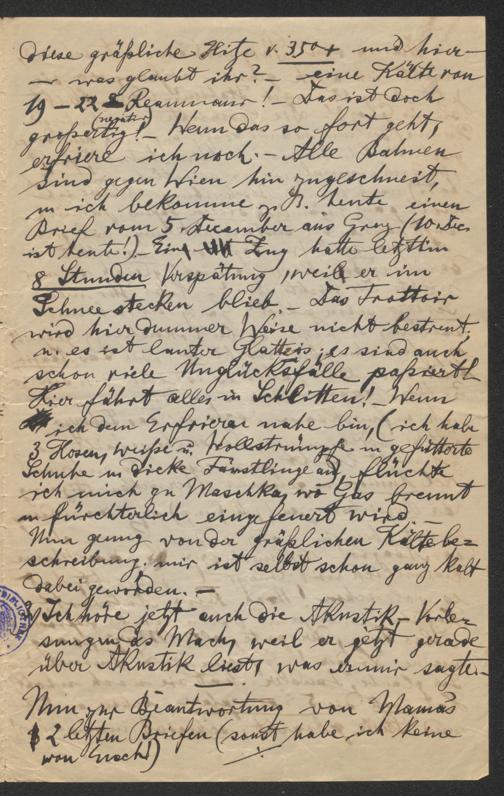 diese gräßliche Hitze v. 35°+ und hier—
— was glaubt ihr? — eine Kälte von
19 – 22 Reaumur! – Das ist doch
(negativ)
großartig! – Wenn das so fort geht,
erfriere ich noch. – Alle Bahnen
sind gegen Wien hin zugeschneit,
u ich bekomme z. B. heute einen
Brief vom 5. December aus Graz (10. Dec.
ist heute!) – Ein Zug hatte letzthin
8 Stunden Verspätung, weil er im
Schnee stecken blieb. – Das Trottoir
wird hier dummer Weise nicht bestreut,
u. es ist lauter Glatteis; es sind auch
schon viele Unglücksfälle passiert.
Hier fährt alles in Schlitten! – Wenn
ich dem Erfrieren nahe bin, (ich habe
3 Hosen, weiße u. Wollstrümpfe u gefütterte
Schuhe u dicke Fäustlinge an) flüchte
ich mich zu Maschka, wo Gas brennt
u fürchterlich eingefeuert wird.
Nun genug von der gräßlichen Kältebe=
schreibung. mir ist selbst schon ganz kalt
dabei geworden. –
Ich höre jetzt auch die Akustik-Vorle=
sungen des Mach, weil er jetzt gerade
über Akustik liest, was er mir sagte. –
Nun zur Beantwortung von Mamas
2 letzten Briefen (sonst habe ich keine
von Euch!)